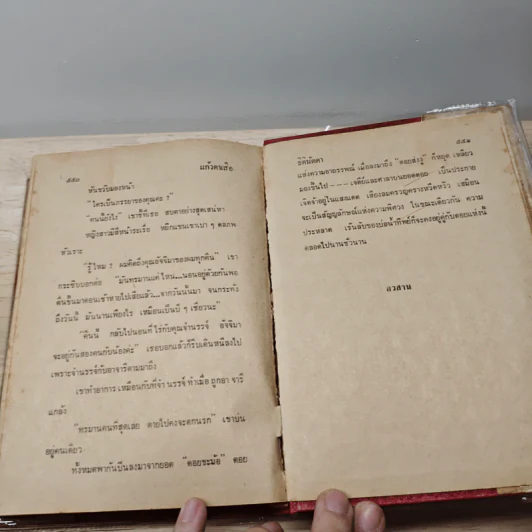 ๕๕๐
แก้วตนเสือ
ขันขวัยมองหน้า
"ใครเป็นภรรยาของคุณคะ ?"
"คืนนี้ยังไง" เขาขำเธอ สบตาอย่างสุดเสน่หา
หญิงสาวมีสีหน้าระเรื่อ หยิกแขนเขาเบา ๆ ตลกพ
หันเราะ
"รู้ไหม ! ผมคิดถึงคุณอัจจิมาของผมทุกคืน" เขา
กระซิบบอกต่อ มันทุรมานแค่ไหน...นอนอยู่ด้วยกันพอ
ตื่นขึ้นมาตอนเช้าหายไปเสียแล้ว...จากวันนั้นมา จนกระทั่ง
ถึงวันนี้ มันนานเพียงไร เหมือนเป็นปี ๆ เชียวนะ"
"คืนนี้ กลับไปนอนที่ไร่กับคุณจ้านรรจ์ อัจจิมา
จะอยู่กันสองคนกับน้องค่ะ" เธอบอกแล้วก็รีบเดินหนีลงไป
เพราะจ้านรรจ์กับอาจารีตามมาถึง
เขาทำอาการเหมือนกับที่จ้านรรจ์ ทำเมื่อถูกอาจารี
แกล้ง
"ทรมานคนที่สุดเลย ตายไปคงจะตกนรก" เขาบ่น
อยู่คนเดียว
ทั้งหมดพากันปีนลงมาจากยอด "ดอยขะม้อ" ดอย
๕๕๑
แห่งความอาถรรพณ์ เมื่อลงมาถึง "ดอยส่งกู่" ก็หยุด เหลียว
มองขึ้นไป ---- เจดีย์และศาลาบนยอดดอย เป็นประกาย
เจิดจ้าอยู่ในแสงแดด เสียงลมครวญคร่ำหวีดหวิว เสมือน
จะเป็นสัญลักษณ์แห่งความพิศวง ในขณะเดียวกัน ความ
ประหลาด เร้นลับของบ่อน้ำทิพย์ก็จะคงอยู่คู่กับดอยแห่งนี้
ตลอดไปนานชั่วนาน
อวสาน